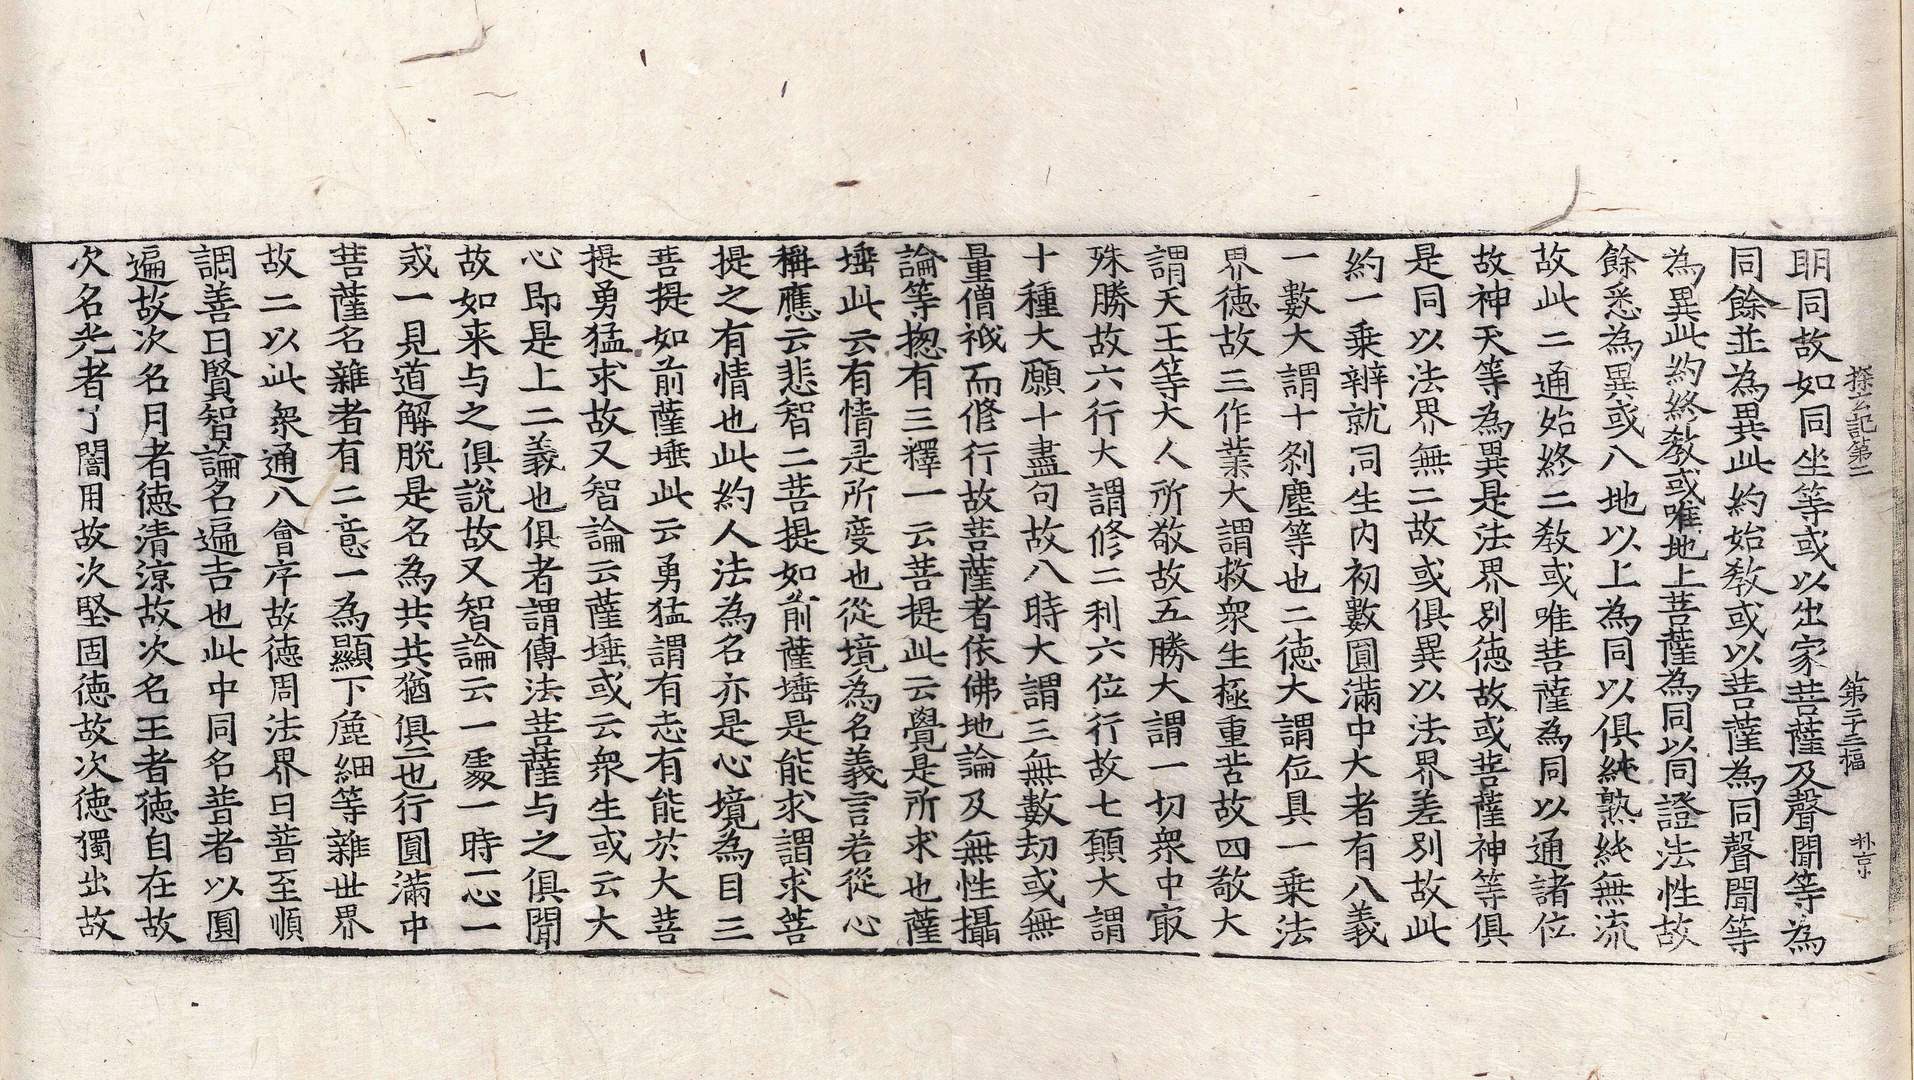 探玄記第二　第二十三幅　林京
明同故如同坐等或以出家菩薩及聲聞等為
同餘並為異此約始教或以菩薩為同聲聞等
為異此約終教或唯地上菩薩為同以同證法性故
餘悉為異或八地以上為同以俱純熟純無流
故此二通始終二教或唯菩薩為同以通諸位
故神天等為異是法界別徳故或菩薩神等俱
是同以法界無二故或俱異以法界差別故此
約一乗辨就同生內初數圓滿中大者有八義
一數大謂十剎塵等也二徳大謂位具一乗法
界徳故三作業大謂救衆生極重苦故四敬大
謂天王等大人所敬故五勝大謂一切衆中㝡
殊勝故六行大謂修二利六位行故七願大謂
十種大願十盡句故八時大謂三無數劫或無
量僧祇而修行故菩薩者依佛地論及無性攝
論等揔有三釋一云菩提此云覺是所求也薩
埵此云有情是所度也從境為名義言若從心
稱應云悲智二菩提如前薩埵是能求謂求菩
提之有情也此約人法為名亦是心境為目三
菩提如前薩埵此云勇猛謂有志有能於大菩
提勇猛求故又智論云薩埵或云衆生或云大
心即是上二義也俱者謂傳法菩薩与之俱聞
故如来与之俱説故又智論云一處一時一心一
戒一見道解脫是名為共共猶俱也行圓滿中
菩薩名雜者有二意一為顯下麁細等雜世界
故二以此衆通八會序故徳周法界曰普至順
調善曰賢智論名遍吉也此中同名普者以圓
遍故次名月者徳清涼故次名王者徳自在故
次名光者了闇用故次堅固徳故次徳獨出故